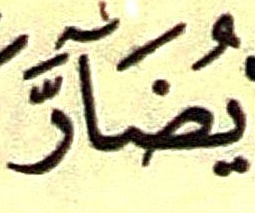 يُضَآرَّ